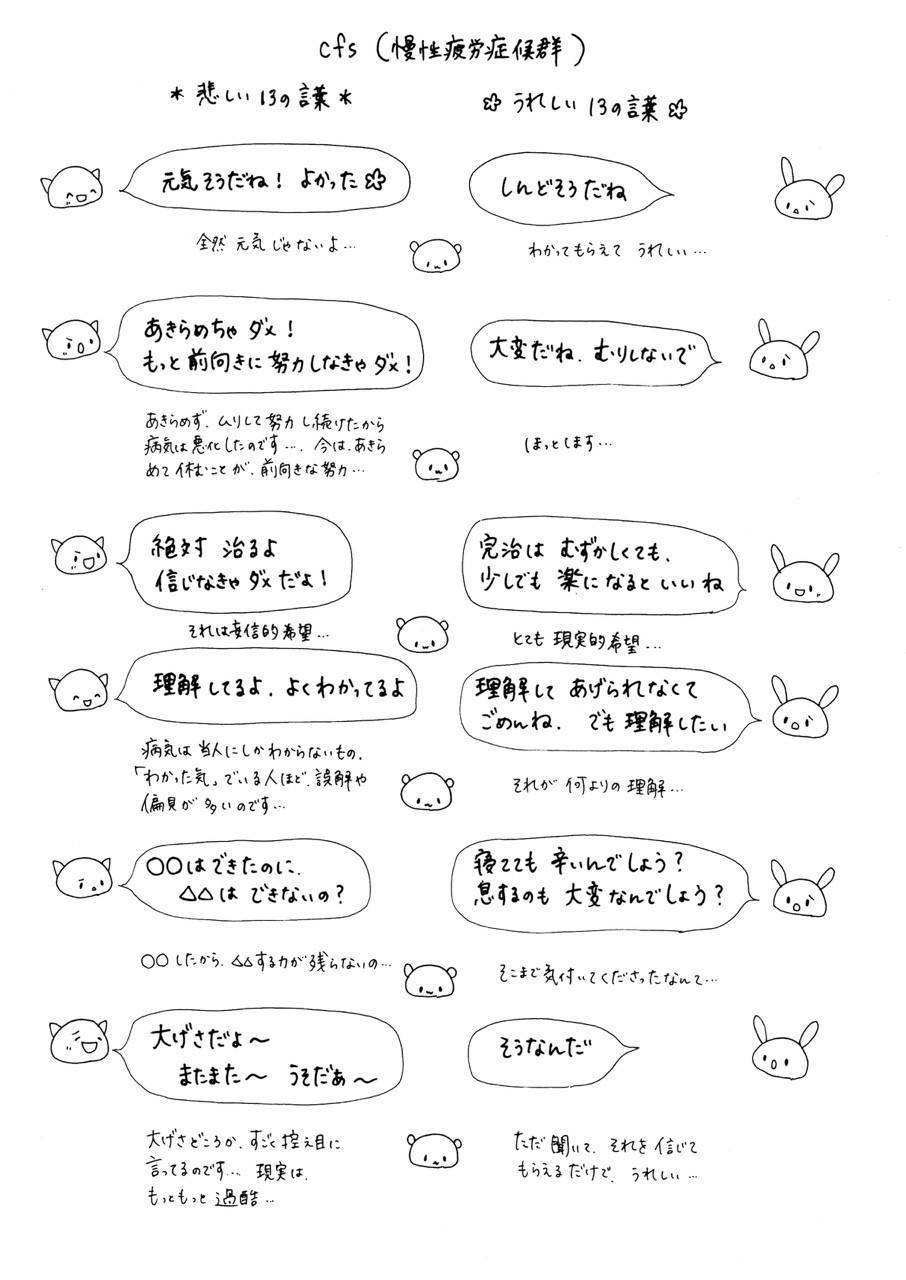 cfs (慢性疲労症候群)
＊ 悲しい 13の言葉 ＊
✿ うれしい 13の言葉 ✿
元気そうだね! よかった✿
全然 元気じゃないよ…
しんどそうだね
わかってもらえて うれしい…
あきらめちゃ ダメ!
もっと前向きに 努力しなきゃ ダメ!
あきらめず、ムリして努力し続けたから
病気は悪化したのです…。今は、あきら
めて休むことが、前向きな努力…
大変だね、むりしないで
ほっとします…
絶対 治るよ
信じなきゃ ダメだよ!
それは妄信的希望…
完治は むずかしくても、
少しでも 楽になると いいね
とても 現実的希望…
理解してるよ、よくわかってるよ
病気は 当人にしかわからないもの。
「わかった気」でいる人ほど、誤解や
偏見が多いのです…
理解して あげられなくて
ごめんね、 でも 理解したい
それが 何よりの 理解…
○○はできたのに、
△△は できないの?
○○したから、△△する力が残らないの…
寝てても 辛いんでしょう?
息するのも 大変なんでしょう?
そこまで気付いてくださったなんて…
大げさだよ〜
またまた〜 うそだぁ〜
大げさどころか、すごく控え目に
言ってるのです… 現実は、
もっともっと 過酷…
そうなんだ
ただ 聞いて、それを 信じて
もらえるだけで、うれしい…